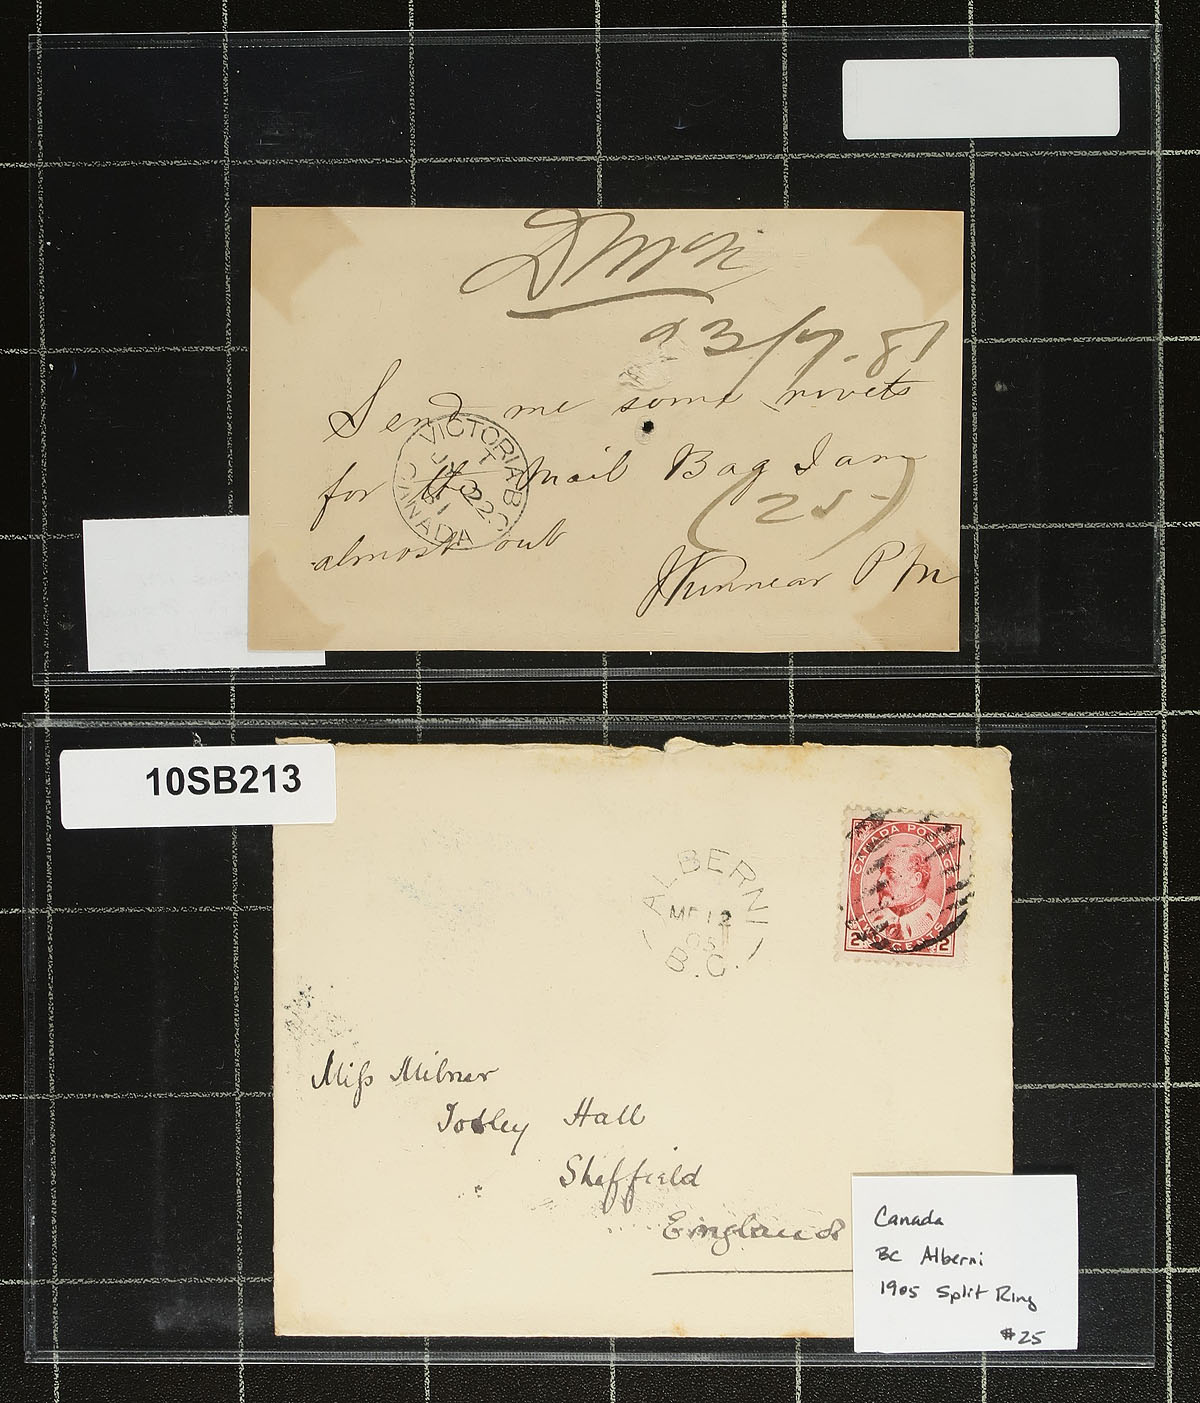 23/7.81
Send me some rivets
for the Mail Bag I am
(25)
almost out
J Kinnear P M
VICTORIA B.C
CANADA
10SB213
CANADA POSTAGE
2 TWO CENTS 2
ALBERNI
MR 12
05
B.C.
Miss Milner
Totley Hall
Sheffield
England
Canada
BC Alberni
1905 Split Ring
$25